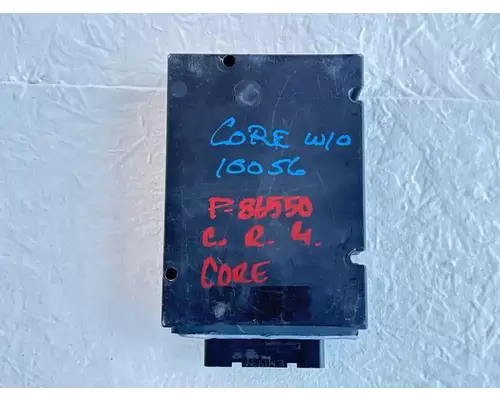 CORE W/O
10056
F-86550
C. R. 4.
CORE